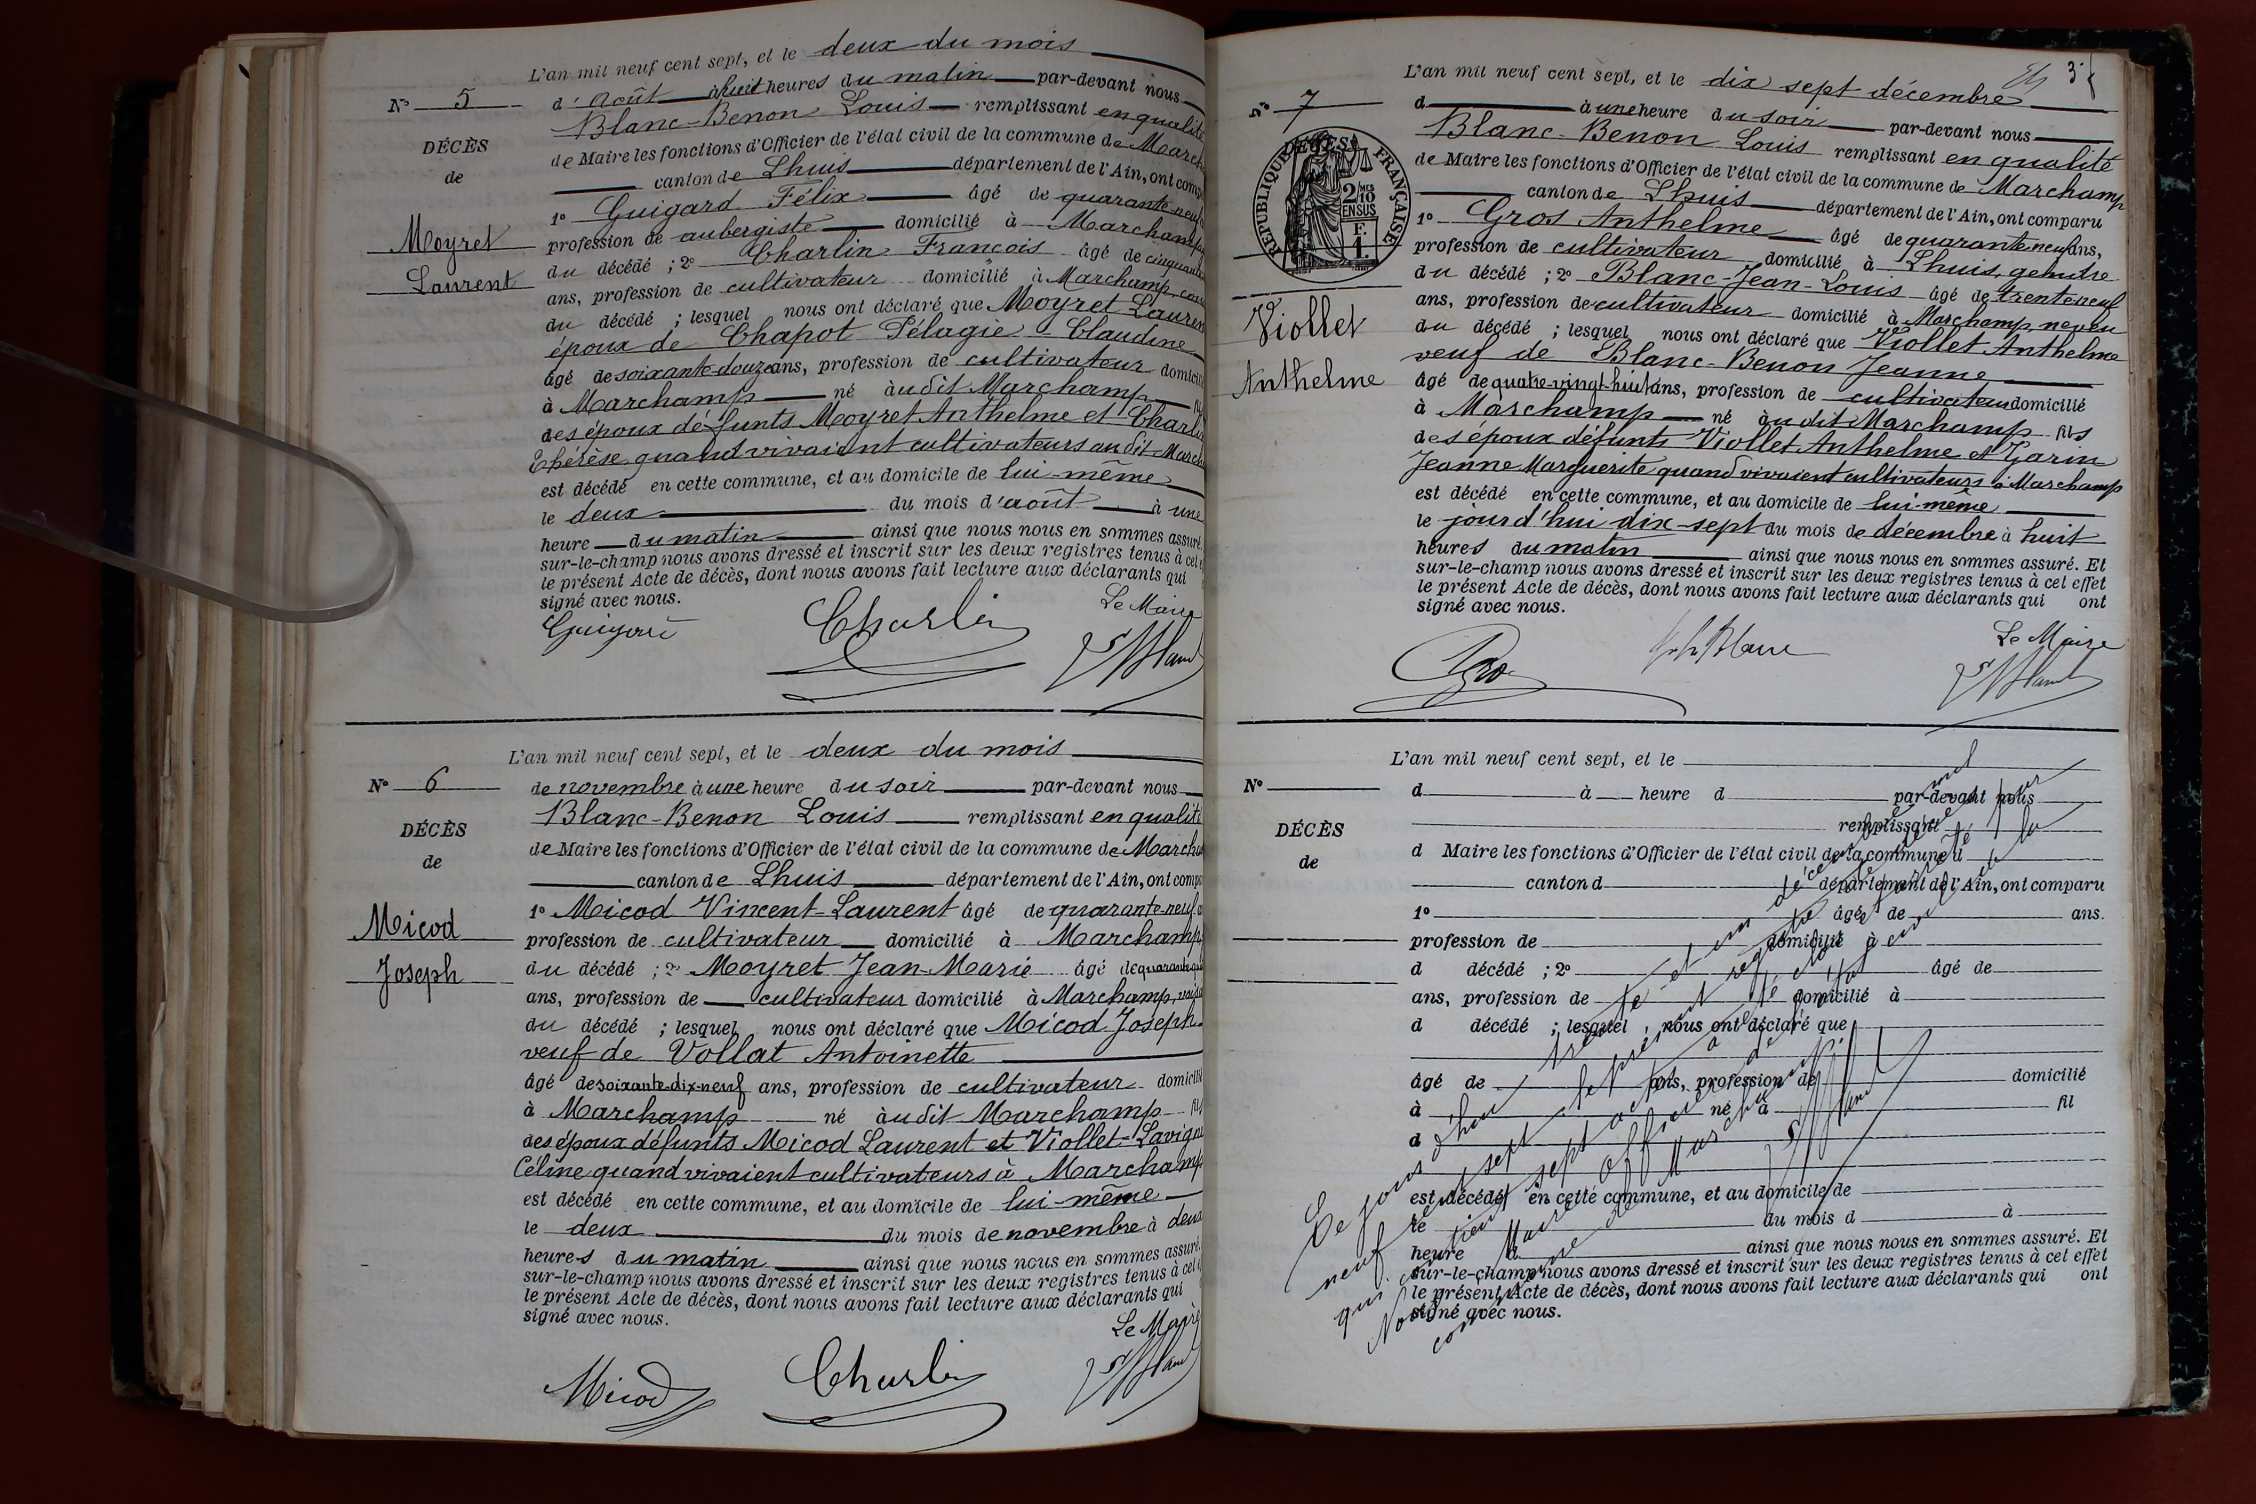 L'an mil neuf cent sept, et le deux du mois
d'Août à huit heures du matin par-devant nous
Blanc-Benon Louis remplissant en qualité
de Maire les fonctions d'Officier de l'état civil de la commune de March
canton de Lhuis département de l'Ain, ont comp
1° Guigard Félix âgé de quarante-neuf
profession de aubergiste domicilié à Marchamp
du décédé ; 2° Charlin François âgé de cinquante
ans, profession de cultivateur domicilié à Marchamp, cous
du décédé ; lesquel nous ont déclaré que Moyret Lauren
époux de Chapot Pélagie Claudine
âgé de soixante-douze ans, profession de cultivateur domicili
à Marchamp né audit Marchamp fil
des époux défunts Moyret Anthelme et Charlin
Thérèse quand vivaient cultivateurs audit March
est décédé en cette commune, et au domicile de lui-même
le deux du mois d'août à une
heure du matin ainsi que nous nous en sommes assuré.
sur-le-champ nous avons dressé et inscrit sur les deux registres tenus à cet e
le présent Acte de décès, dont nous avons fait lecture aux déclarants qui
signé avec nous.
Le Maire
Guigard Charlin
N° 5
DÉCÈS
de
Moyret
Laurent
L'an mil neuf cent sept, et le deux du mois
de novembre à une heure du soir par-devant nous
Blanc-Benon Louis remplissant en qualité
de Maire les fonctions d'Officier de l'état civil de la commune de Marcha
canton de Lhuis département de l'Ain, ont comp
1° Micod Vincent-Laurent âgé de quarante-neuf
profession de cultivateur domicilié à Marchamp
du décédé ; 2° Moyret Jean-Marie âgé de quarante
ans, profession de cultivateur domicilié à Marchamp, voisin
du décédé ; lesquel nous ont déclaré que Micod Joseph
veuf de Vollat Antoinette
âgé de soixante-dix-neuf ans, profession de cultivateur domicilié
à Marchamp né audit Marchamp fils
des époux défunts Micod Laurent et Viollet-Lavigne
Céline quand vivaient cultivateurs à Marchamp
est décédé en cette commune, et au domicile de lui-même
le deux du mois de novembre à deux
heures du matin ainsi que nous nous en sommes assuré.
sur-le-champ nous avons dressé et inscrit sur les deux registres tenus à cet e
le présent Acte de décès, dont nous avons fait lecture aux déclarants qui
signé avec nous.
Le Maire
Micod Charlin
N° 6
DÉCÈS
de
Micod
Joseph
3
L'an mil neuf cent sept, et le dix sept décembre
d à une heure du soir par-devant nous
Blanc-Benon Louis remplissant en qualité
de Maire les fonctions d'Officier de l'état civil de la commune de Marchamp
canton de Lhuis département de l'Ain, ont comparu
1° Gros Anthelme âgé de quarante-neuf ans,
profession de cultivateur domicilié à Lhuis, gendre
du décédé ; 2° Blanc Jean-Louis âgé de trente-neuf
ans, profession de cultivateur domicilié à Marchamp neveu
du décédé ; lesquel nous ont déclaré que Viollet Anthelme
veuf de Blanc-Benon Jeanne
âgé de quatre-vingt-huit ans, profession de cultivateur domicilié
à Marchamp né audit Marchamp fils
des époux défunts Viollet Anthelme et Garin
Jeanne Marguerite quand vivaient cultivateurs à Marchamp
est décédé en cette commune, et au domicile de lui-même
le jour d'hui dix-sept du mois de décembre à huit
heures du matin ainsi que nous nous en sommes assuré. Et
sur-le-champ nous avons dressé et inscrit sur les deux registres tenus à cet effet
le présent Acte de décès, dont nous avons fait lecture aux déclarants qui ont
signé avec nous.
Le Maire
Gros Blanc
N° 7
DÉCÈS
RÉPUBLIQUE FRANÇAISE
2/10
EN SUS
1 F.
Viollet
Anthelme
L'an mil neuf cent sept, et le
d à heure d par-devant nous
remplissant
d Maire les fonctions d'Officier de l'état civil de la commune d
canton d département de l'Ain, ont comparu
1° âgé de ans.
profession de domicilié à
d décédé ; 2° âgé de
ans, profession de domicilié à
d décédé ; lesquel nous ont déclaré que
âgé de ans, profession de domicilié
à né à fil
d
est décédé en cette commune, et au domicile de
le du mois d à
heure d ainsi que nous nous en sommes assuré. Et
sur-le-champ nous avons dressé et inscrit sur les deux registres tenus à cet effet
le présent Acte de décès, dont nous avons fait lecture aux déclarants qui ont
signé avec nous.
N°
DÉCÈS
de
Ce jour d'hui trente et un décembre mil
neuf cent sept le présent registre
qui contient sept actes a été clos et arrêté par
Nous Maire officier de l'état civil de la
commune de Marchamp.